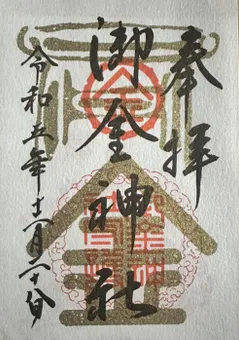 奉拝
御金神社
令和五年十一月二十八日